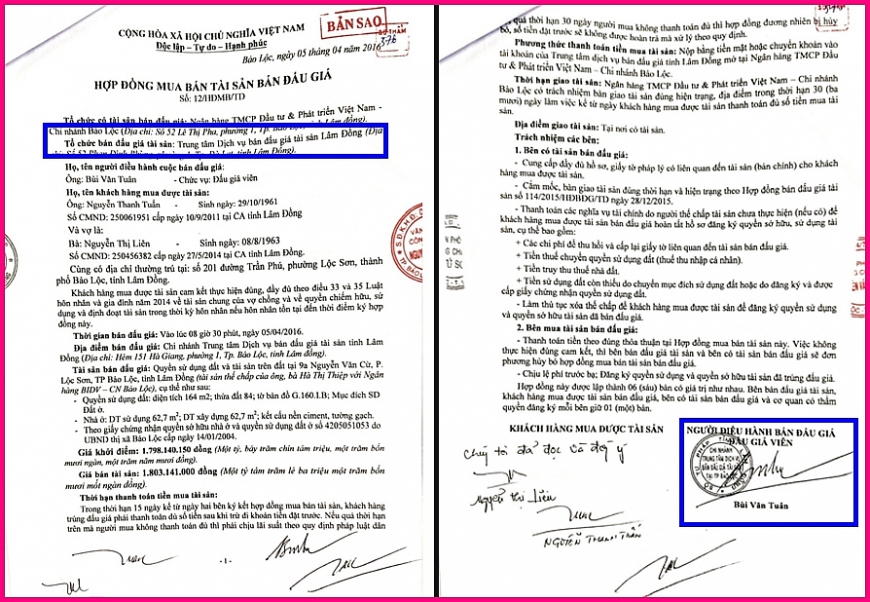 CỘNG HÒA XÃ HỘI CHỦ NGHĨA VIỆT NAM
Độc lập - Tự do - Hạnh phúc
BẢN SAO
376
Bảo Lộc, ngày 05 tháng 04 năm 2016
HỢP ĐỒNG MUA BÁN TÀI SẢN BÁN ĐẤU GIÁ
Số: 12/HĐMB/TD
Tổ chức có tài sản bán đấu giá: Ngân hàng TMCP Đầu tư & Phát triển Việt Nam -
Chi nhánh Bảo Lộc (Địa chỉ: Số 52 Lê Thị Pha, phường 1, Tp.
Tổ chức bán đấu giá tài sản: Trung tâm Dịch vụ bán đấu giá tài sản Lâm Đồng (Địa
Họ, tên người điều hành cuộc bán đấu giá:
Ông: Bùi Văn Tuân - Chức vụ: Đấu giá viên
Họ, tên khách hàng mua được tài sản:
Ông: Nguyễn Thanh Tuấn - Sinh ngày: 29/10/1961
Số CMND: 250061951 cấp ngày 10/9/2011 tại CA tỉnh Lâm Đồng
Và vợ là:
Bà: Nguyễn Thị Liên - Sinh ngày: 08/8/1963
Số CMND: 250456382 cấp ngày 27/5/2014 tại CA tỉnh Lâm Đồng.
Cùng có địa chỉ thường trú tại: số 201 đường Trần Phú, phường Lộc Sơn, thành
phố Bảo Lộc, tỉnh Lâm Đồng.
Khách hàng mua được tài sản cam kết thực hiện đúng, đầy đủ theo điều 33 và 35 Luật
hôn nhân và gia đình năm 2014 về tài sản chung của vợ chồng và về quyền chiếm hữu, sử
dụng và định đoạt tài sản trong thời kỳ hôn nhân nếu hôn nhân tồn tại đến thời điểm ký hợp
đồng này.
Thời gian bán đấu giá: Vào lúc 08 giờ 30 phút, ngày 05/04/2016.
Địa điểm bán đấu giá: Chi nhánh Trung tâm Dịch vụ bán đấu giá tài sản tỉnh Lâm
Đồng (Địa chỉ: Hẻm 151 Hà Giang, phường 1, Tp. Bảo Lộc, tỉnh Lâm đồng).
Tài sản bán đấu giá: Quyền sử dụng đất và tài sản trên đất tại 9a Nguyễn Văn Cừ, P.
Lộc Sơn, TP Bảo Lộc, tỉnh Lâm Đồng (tài sản thế chấp của ông, bà Hà Thị Thiệp với Ngân
hàng BIDV – CN Bảo Lộc), cụ thể như sau:
- Quyền sử dụng đất: diện tích 164 m2; thửa đất 84; tờ bản đồ G.160.I.B; Mục đích SD
Đất ở.
- Nhà ở: DT sử dụng 62,7 m2; DT xây dựng 62,7 m2; kết cấu nền ciment, tường gạch.
- Theo giấy chứng nhận quyền sở hữu nhà ở và quyền sử dụng đất ở số 4205051053 do
UBND thị xã Bảo Lộc cấp ngày 14/01/2004.
Giá khởi điểm: 1.798.140.150 đồng (Một tỷ, bảy trăm chín tám triệu, một trăm bốn
mươi ngàn, một trăm năm mươi đồng).
Giá bán tài sản: 1.803.141.000 đồng (Một tỷ tám trăm lẻ ba triệu một trăm bốn
mươi mốt ngàn đồng).
Thời hạn thanh toán tiền mua tài sản:
Trong thời hạn 15 ngày kể từ ngày hai bên ký kết hợp đồng mua bán tài sản, khách hàng
trúng đấu giá phải thanh toán đủ số tiền sau khi trừ đi khoản tiền đặt trước. Nếu quá thời hạn
trên mà người mua không thanh toán đủ thì phải chịu lãi suất theo quy định pháp luật dân
-1-
quá thời hạn 30 ngày người mua không thanh toán đủ thì hợp đồng đương nhiên bị hủy
bỏ, số tiền đặt trước sẽ không được hoàn trả mà xử lý theo quy định.
Phương thức thanh toán tiền mua tài sản: Nộp bằng tiền mặt hoặc chuyển khoản vào
tài khoản của Trung tâm dịch vụ bán đấu giá tỉnh Lâm Đồng mở tại Ngân hàng TMCP Đầu
tư & Phát triển Việt Nam – Chi nhánh Bảo Lộc.
Thời hạn giao tài sản: Ngân hàng TMCP Đầu tư & Phát triển Việt Nam – Chi nhánh
Bảo Lộc có trách nhiệm bàn giao tài sản đúng hiện trạng, địa điểm trong thời hạn 30 (ba
mươi) ngày làm việc kể từ ngày khách hàng mua được tài sản thanh toán đủ số tiền mua tài
sản.
Địa điểm giao tài sản: Tại nơi có tài sản.
Trách nhiệm các bên:
1. Bên có tài sản bán đấu giá:
- Cung cấp đầy đủ hồ sơ, giấy tờ pháp lý có liên quan đến tài sản (bản chính) cho khách
hàng mua được tài sản.
- Cắm mốc, bàn giao tài sản đúng thời hạn và hiện trạng theo Hợp đồng bán đấu giá tài
sản số 114/2015/HĐBĐG/TD ngày 28/12/2015.
- Thanh toán các nghĩa vụ tài chính do người thế chấp tài sản chưa thực hiện (nếu có) để
khách hàng mua được tài sản bán đấu giá hoàn tất hồ sơ đăng ký quyền sở hữu, sử dụng tài
sản, cụ thể bao gồm:
+ Các chi phí để thu hồi và cấp lại giấy tờ liên quan đến tài sản bán đấu giá.
+ Tiền thuế chuyển quyền sử dụng đất (thuế thu nhập cá nhân).
+ Tiền truy thu thuế nhà đất.
+ Tiền sử dụng đất còn thiếu do chuyển mục đích sử dụng đất hoặc do đăng ký và được
cấp giấy chứng nhận quyền sử dụng đất.
- Làm thủ tục xóa thế chấp để khách hàng mua được tài sản để đăng ký quyền sử dụng
và quyền sở hữu tài sản đã bán đấu giá.
2. Bên mua tài sản bán đấu giá:
- Thanh toán tiền theo đúng thỏa thuận tại Hợp đồng mua bán tài sản này. Việc không
thực hiện đúng cam kết, thì bên bán đấu giá tài sản và bên có tài sản bán đấu giá sẽ đơn
phương hủy bỏ hợp đồng mua bán tài sản bán đấu giá.
- Chịu lệ phí trước bạ; Đăng ký quyền sử dụng và quyền sở hữu tài sản đã trúng đấu giá.
Hợp đồng này được lập thành 06 (sáu) bản có giá trị như nhau. Bên bán đấu giá tài sản,
khách hàng mua được tài sản bán đấu giá, bên có tài sản bán đấu giá và cơ quan có thẩm
quyền đăng ký mỗi bên giữ 01 (một) bản.
KHÁCH HÀNG MUA ĐƯỢC TÀI SẢN
Chúng tôi đã đọc và đồng ý
Nguyễn Thị Liên
NGUYỄN THANH TUẤN
NGƯỜI ĐIỀU HÀNH BÁN ĐẤU GIÁ
ĐẤU GIÁ VIÊN
CHI NHÁNH
TRUNG TÂM DỊCH VỤ
BÁN ĐẤU GIÁ TÀI SẢN
TẠI TP BẢO LỘC
Bùi Văn Tuân